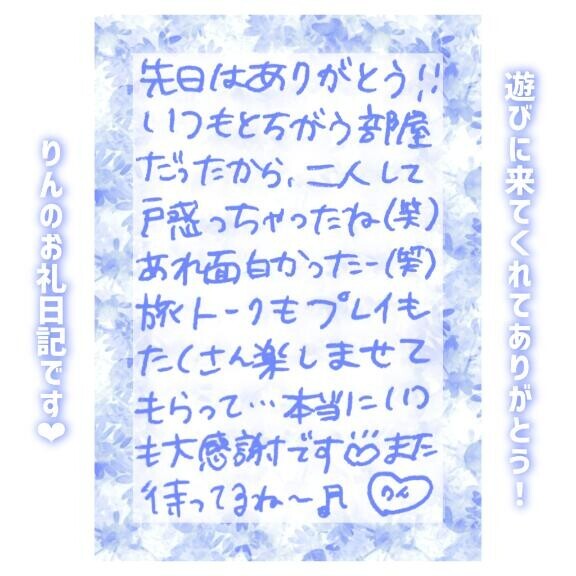 遊びに来てくれてありがとう!
先日はありがとう!!
いつもとちがう部屋
だったから、二人して
戸惑っちゃったね(笑)
あれ面白かったー(笑)
旅トークもプレイも
たくさん楽しませて
もらって…本当にいつ
も大感謝ですまた
待ってるね〜♬
りんのお礼日記です❤